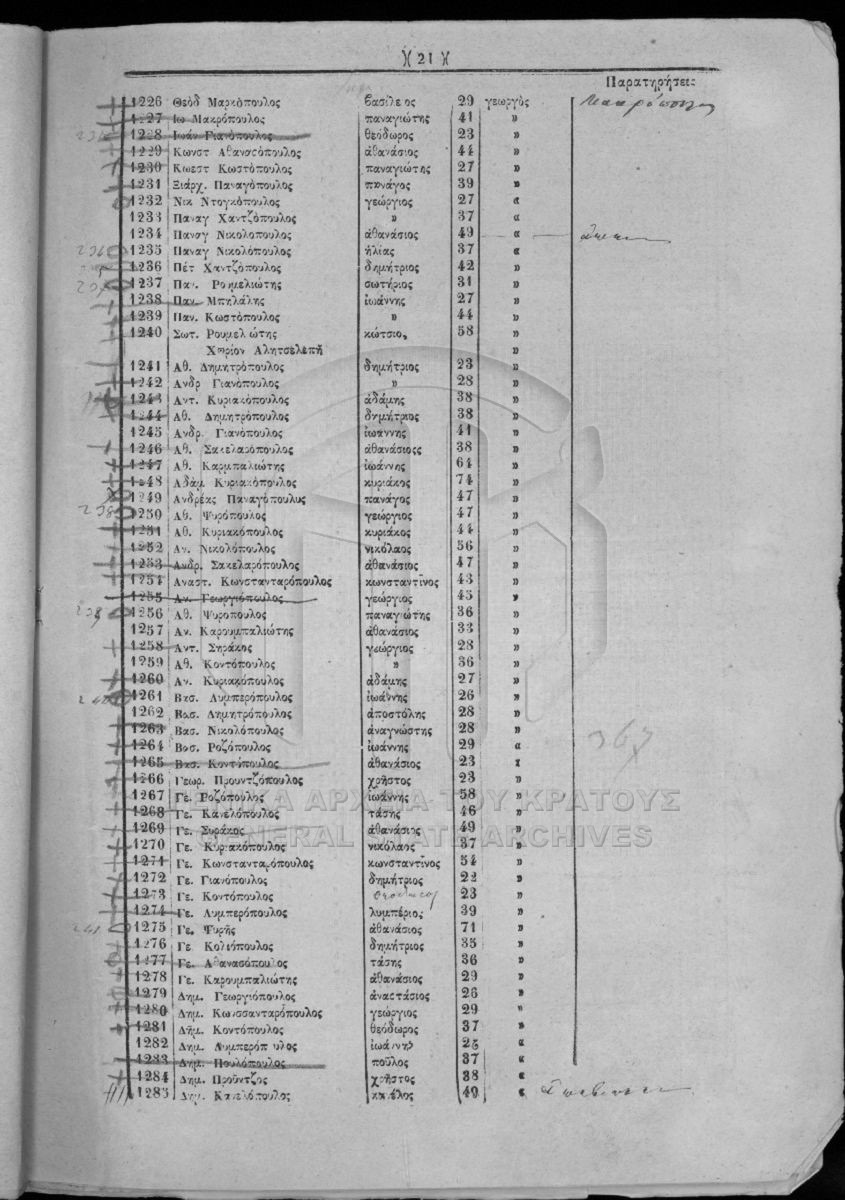 )( 21 )(
Παρατηρήσεις
1226 Θεόδ Μαρκόπουλος βασίλειος 29 γεωργὸς
1227 Ιω Μακρόπουλος παναγιώτης 41 »
1228 Ιωάν Γιανόπουλος θεόδωρος 23 »
1229 Κωνστ Αθανασόπουλος ἀθανάσιος 44 »
1230 Κωεστ Κωστόπουλος παναγιώτης 27 »
1231 Ξιάρχ. Παναγόπουλος πανάγος 39 »
1232 Νικ Ντογκόπουλος γεώργιος 27 «
1233 Παναγ Χαντζόπουλος » 37 «
1234 Παναγ Νικολοπουλος ἀθανάσιος 49 «
1235 Παναγ Νικολόπουλος ἠλίας 37 «
1236 Πέτ Χαντζόπουλος δημήτριος 42 »
1237 Παν. Ρουμελιώτης σωτήριος 31 »
1238 Παν. Μπηλάλης ἰωάννης 27 »
1239 Παν. Κωστόπουλος » 44 »
1240 Σωτ. Ρουμελιώτης κώτσιο. 58 »
Χωρίον Αλητσελεπῆ »
1241 Αθ. Δημητρόπουλος δημήτριος 23 »
1242 Ανδρ Γιανόπουλος » 28 »
1243 Αντ. Κυριακόπουλος ἀδάμης 38 »
1244 Αθ. Δημητρόπουλος δημήτριος 38 »
1245 Ανδρ. Γιανόπουλος ἰωάννης 41 »
1246 Αθ. Σακελαρόπουλος ἀθανάσιοςς 38 »
1247 Αθ. Καρμπαλιώτης ἰωάννης 64 »
1248 Αδάμ Κυριακόπουλος κυριάκος 74 »
1249 Ανδρέας Παναγόπουλυς πανάγος 47 »
1250 Αθ. Ψυρόπουλος γεώργιος 47 »
1251 Αθ. Κυριακόπουλος κυριάκος 44 »
1252 Αν. Νικολόπουλος νικόλαος 56 »
1253 Ανδρ. Σακελαρόπουλος ἀθανάσιος 47 »
1254 Αναστ. Κωνσταναρόπουλος κωνσταντῖνος 43 »
1255 Αν. Γεωργιόπουλος γεώργιος 45 »
1256 Αθ. Ψυροπουλος παναγιώτης 36 »
1257 Αν. Καρουμπαλιώτης ἀθανάσιος 33 »
1258 Αντ. Σηράκος γεώργιος 28 »
1259 Αθ. Κοντόπουλος » 36 »
1260 Αν. Κυριακόπουλος ἀδάμης 27 »
1261 Βασ. Λυμπερόπουλος ἰωάννης 26 »
1262 Βασ. Δημητρόπουλος ἀποστόλης 28 »
1263 Βασ. Νικολόπουλος ἀναγνώστης 28 »
1264 Βασ. Ροζόπουλος ἰωάννης 29 «
1265 Βασ. Κοντόπουλος ἀθανάσιος 23 »
1266 Γεωρ. Προυντζόπουλος χρῆστος 23 »
1267 Γε. Ροζόπουλος ἰωάννης 58 »
1268 Γε. Κανελόπουλος τάσης 46 »
1269 Γε. Συράκος ἀθανάσιος 49 »
1270 Γε. Κυριακόπουλος νικόλαος 37 »
1271 Γε. Κωνσταναρόπουλος κωνσταντῖνος 54 »
1272 Γε. Γιανόπουλος δημήτριος 22 »
1273 Γε. Κοντόπουλος 23 »
1274 Γε. Λυμπερόπουλος λυμπέριος 39 »
1275 Γε. Ψυρῆς ἀθανάσιος 71 »
1276 Γε. Κολιόπουλος δημήτριος 35 »
1277 Γε. Αθανασόπουλος τάσης 36 »
1278 Γε. Καρουμπαλιώτης ἀθανάσιος 29 »
1279 Δημ. Γεωργιόπουλος ἀναστάσιος 26 »
1280 Δημ. Κωνσσανταρόπουλος γεώργιος 29 »
1281 Δημ. Κοντόπουλος θεόδωρος 37 »
1282 Δημ. Λυμπερόπουλος ἰωάννης 25 «
1283 Δημ. Πουλόπουλος ποῦλος 37 «
1284 Δημ. Προῦντζος χρῆστος 38 «
1285 Δημ. Κανελόπουλος κανέλος 49 «
367
ΓΕΝΙΚΑ ΑΡΧΕΙΑ ΤΟΥ ΚΡΑΤΟΥΣ
GENERAL STATE ARCHIVES